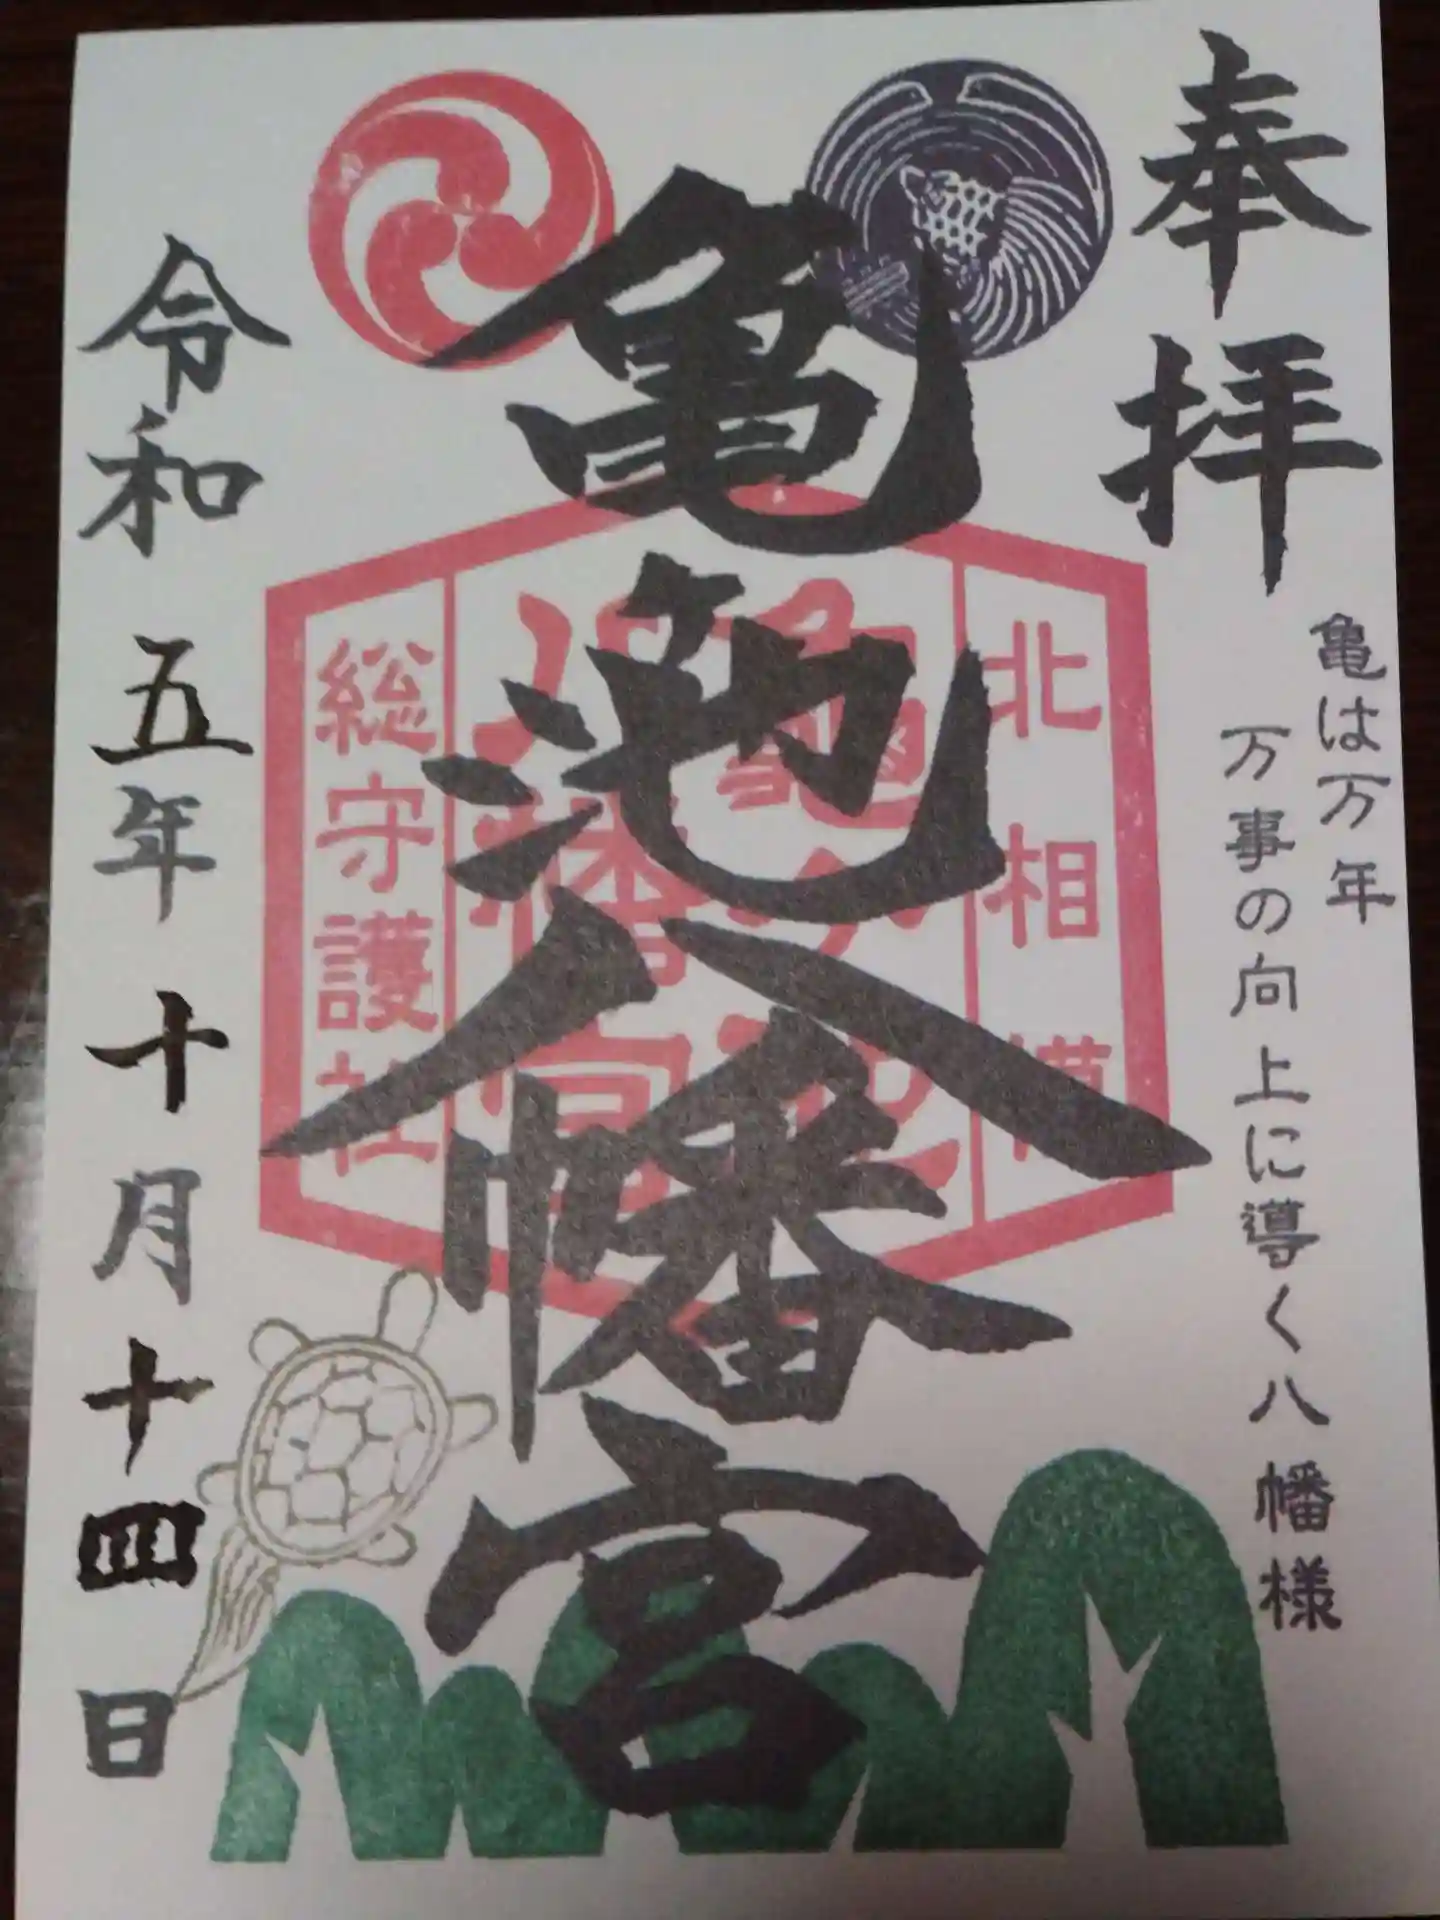 奉拝
亀は万年
万事の向上に導く八幡様
亀池八幡宮
北相模
亀ヶ池
八幡宮
総守護社
令和五年十月十四日